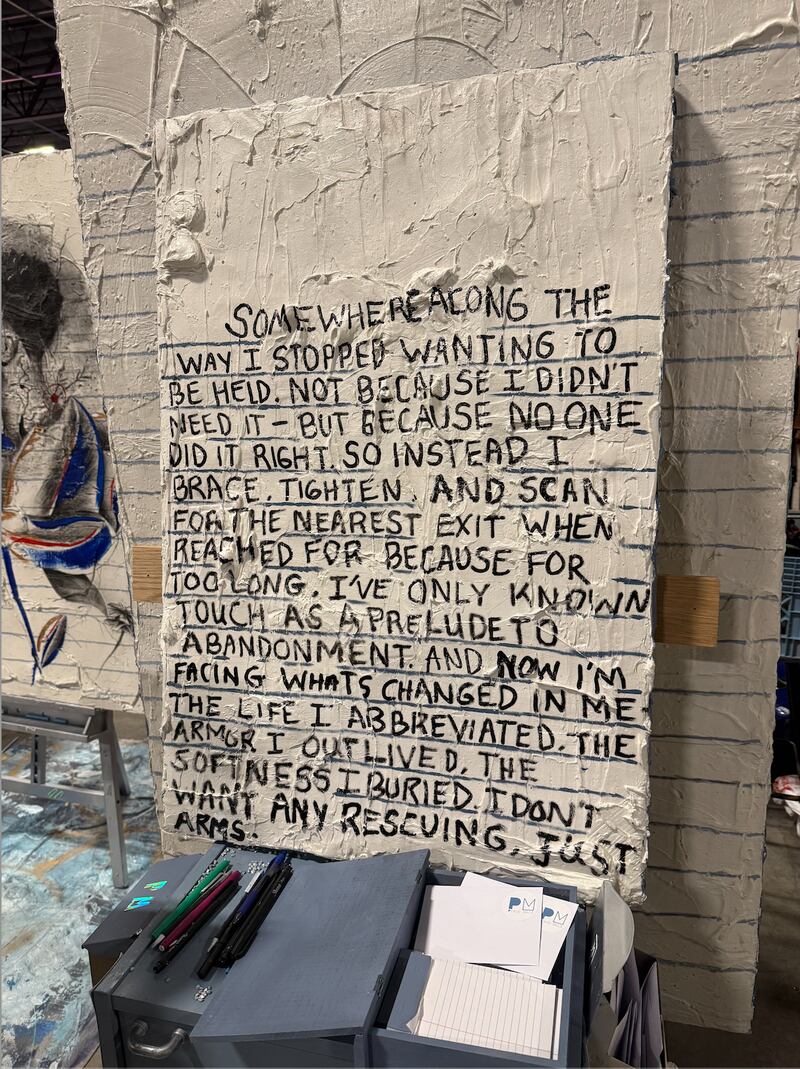 SOMEWHERE ALONG THE
WAY I STOPPED WANTING TO
BE HELD. NOT BECAUSE I DIDN'T
NEED IT - BUT BECAUSE NO ONE
DID IT RIGHT. SO INSTEAD I
BRACE. TIGHTEN. AND SCAN
FOR THE NEAREST EXIT WHEN
REACHED FOR BECAUSE FOR
TOO LONG. I'VE ONLY KNOWN
TOUCH AS A PRELUDE TO
ABANDONMENT. AND NOW I'M
FACING WHATS CHANGED IN ME.
THE LIFE I ABBREVIATED. THE
ARMOR I OUTLIVED. THE
SOFTNESS I BURIED. I DON'T
WANT ANY RESCUING, JUST
ARMS.
PM
PM
PM